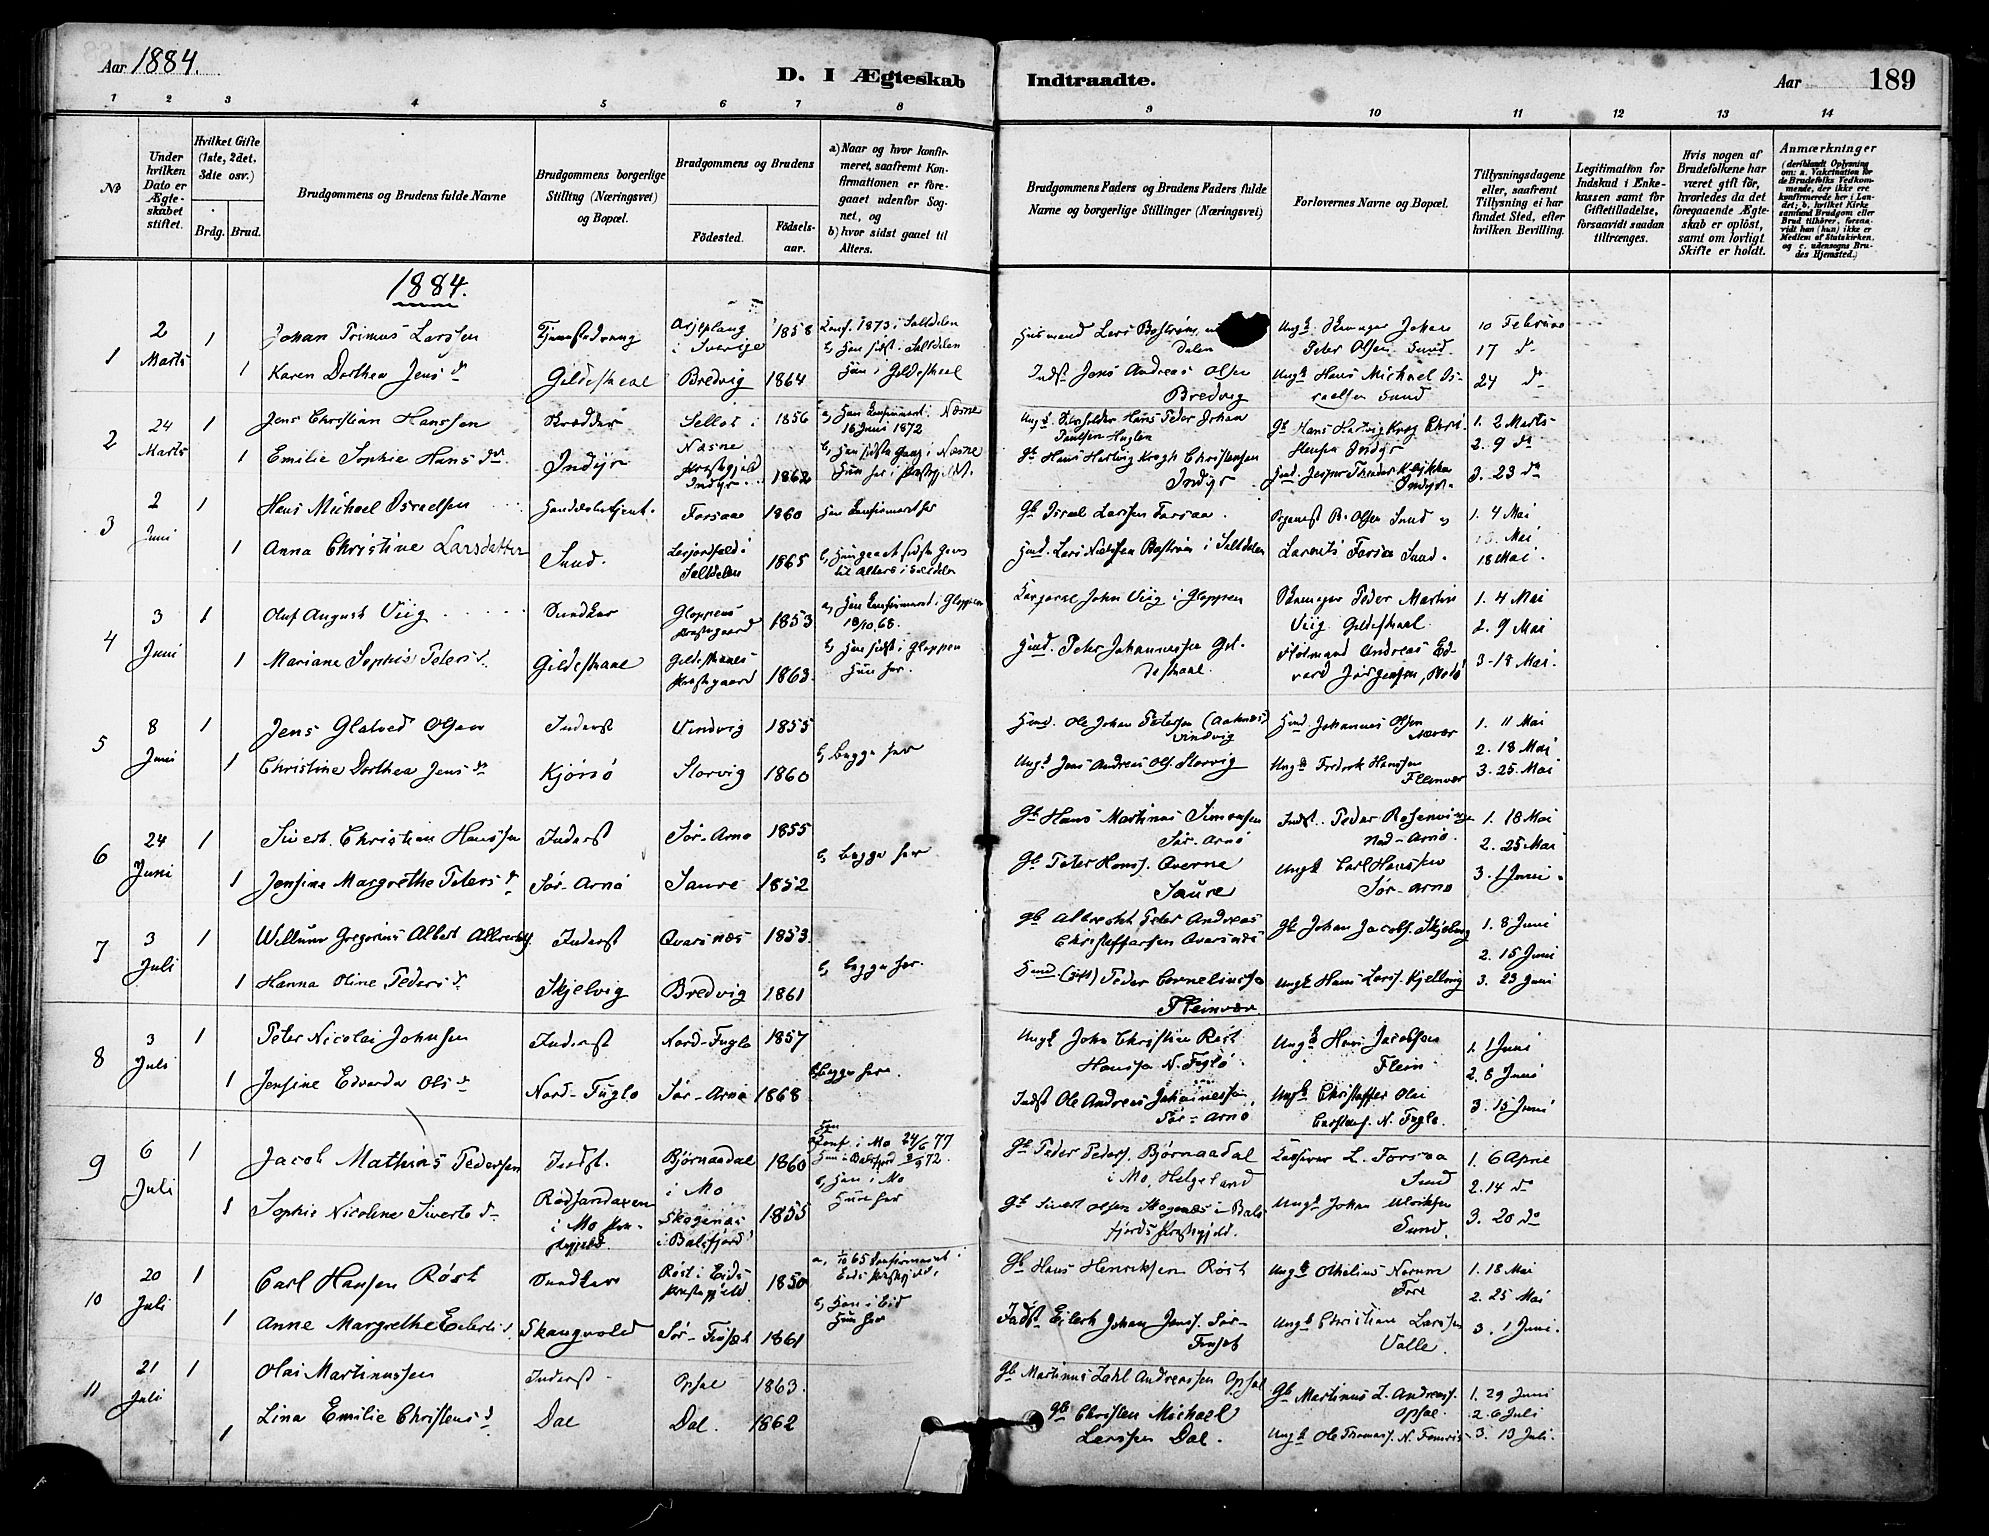 Aar 1884.
D. I Ægteskab Indtraadte.
Aar 189
1 2 3 4 5 6 7 8 9 10 11 12 13 14
№
Under hvilken Dato er Ægteskabet stiftet.
Hvilket Gifte (1ste, 2det, 3die osv.)
Brdg. Brud.
Brudgommens og Brudens fulde Navne
Brudgommens borgerlige Stilling (Næringsvei) og Bopæl.
Brudgommens og Brudens
Fødested.
Fødselsaar.
a) Naar og hvor konfirmeret, saafremt Konfirmationen er foregaaet udenfor Sognet, og
b) hvor sidst gaaet til Alters.
Brudgommens Faders og Brudens Faders fulde Navne og borgerlige Stillinger (Næringsvei)
Forlovernes Navne og Bopæl.
Tillysningsdagene eller, saafremt Tillysning ei har fundet Sted, efter hvilken Bevilling.
Legitimation for Indskud i Enkekassen samt for Giftetilladelse, forsaavidt saadan tiltrænges.
Hvis nogen af Brudefolkene har været gift før, hvorledes da det foregaaende Ægteskab er opløst, samt om lovligt Skifte er holdt.
Anmærkninger
(deriblandt Oplysning om: a. Vakcination for de Brudefolks Vedkommende, der ikke ere konfirmerede her i Landet; b. hvilket Kirkesamfund Brudgom eller Brud tilhører, forsaavidt han (hun) ikke er Medlem af Statskirken, og c. udensogns Brudes Hjemsted.)
1884.
1 2 Marts 1 Johan Primus Larssen Arjeplaug i Sverige 1858 Konf. 1873 i Saltdalen b, Han sidst i Saltdalen
Husmand Lars Boström dalen Ungk. Johan Peter Olsen Sund 10 Februar 17 do
1 Karen Dorthea Jens dr Gildeskaal Bredvig 1864 Hun i Gildeskaal
Indst Jens Andreas Olsen Bredvig Ungk Hans Michael Israelsen Sund 24 do
2 24 Marts 1 Jens Christian Hanssen Skrædder Selløe i Næsne 1856 a, Han konfirmeret i Næsne 16 Juni 1872
Hans Peter Johan Gb Hans Hartvig Krog Christensen Indyr 1. 2 Marts 2. 9 do
1 Emilie Sophie Hans dr. Indyr Præstegjeld Indyr 1862 b, Han sidste Gang i Næsne Hun her i Præstegjeldet.
Gb Hans Hartvig Krogh Christensen Indyr 3. 23 do
3 2 Juni 1 Hans Michael Israelsen Handelsbetjent Forsaa 1860 Han konfirmeret her
Gb Israel Larssen Forsaa B. Olsen Sund 1. 4 Mai
1 Anna Christine Larsdatter Sund. Saltdalen 1865
Hmd. Lars Nielssen Boström i Saltdalen Forsaa Sund. 18 Mai.
4 3 Juni 1 Oluf August Viig Snedker Gloppens Præstegaard 1853 a, Han konfirmeret i Gloppen 18/10 68.
John Viig i Gloppen Peder Martin Viig Gildeskaal 1. 4 Mai 2. 9 Mai
1 Mariane Sophie Peters d. Gildeskaal Gildeskaals Præstegaard 1863. b, Han sidst i Gloppen Hun her.
Hmd. Peter Johannessen Gildeskaal Andreas Edvard Jörgensen 3. 18 Mai.
5 8 Juni 1 Jens Glatved Olsen Inderst Vindvig 1855
Hmd. Ole Johan Petersen (Aaknes) Vindvig Hmd. Johannes Olsen 1. 11 Mai 2. 18 Mai
1 Christine Dorthea Jens dr Kjörsö Storvig 1860 b, begge her
Ungk Jens Andreas Ols. Storvig Ungk Fredrik Hanssen Fleinvær 3. 25. Mai
6 24 Juni 1 Sivert Christian Hanssen Inderst Sör-Arnö 1855
Gb Hans Martinus Simonsen Sör-Arnö Indst. Peder Rosenvinge Nod-Arnö. 1. 18 Mai 2. 25 Mai
1 Jensine Margrethe Peters dr Sör-Arnö Saure 1852 b, begge her.
Gb Peter Hans. Saure Ungk Carl Hanssen Sör-Arnö 3. 1 Juni.
7 3 Juli 1 Willum Gregorius Albert Inderst Qvarsnæs 1853.
Gb Albrecht Peter Andreas Christoffersen Qvarsnæs Gb Johan Jacobs. Skjelvig 1. 8 Juni 2. 15 Juni
1 Hanna Oline Peders dr Skjelvig Bredvig 1861 b, begge her.
Hmd (Gift) Peder Corneliussen Fleinvær. Ungk Hans Larss. Kjelling 3. 23 Juni
8 3 Juli 1 Peter Nicolai Johnsen Inderst Nord-Fuglö 1857
Ungk John Christian Röst Hanssen N. Fuglö Ungk Hans Jacobsen Flein 1. 1 Juni 2. 8 Juni
1 Jensine Edvarda Ols dr Nord-Fuglö Sör-Arnö 1868 begge her.
Indst Ole Andreas Johannessen Sör-Arnö Ungk Christoffer Olai N. Fuglö. 3. 15 Juni
9 6 Juli 1 Jacob Mathias Pedersen Indst. Bjørnaadal i Mo 1860 Konf. i Mo 24/6 77
Gb Peder Peders. Bjørnaadal i Mo, Helgeland L. Forsaa Sund 1. 6 April 2. 14 do
1 Sophie Nicoline Siverts dr i Mo Skogenæs i Balsfjord 1855 b, Han i Mo Hun her
Gb Sivert Olsen Skogenæs i Balsfjords Præstegjeld. Ungk Johan Sund. 3. 20 do
10 20 Juli 1 Carl Hansen Röst Snedker Röst i Eids Præstegjeld 1850
Gb Hans Henriksen Röst Ungk Othelius Norum Fore 1. 18 Mai 2. 25 Mai
1 Anne Margrethe Eilerts d. Skaugvold 1861 b, Han i Eid Hun her
Indst Eilert Johan Jens. Ungk Christian Larssen Valle. 3. 1 Juni.
11 21 Juli 1 Olai Martinussen Inderst Opsal 1863.
Gb Martinus Zahl Andreassen Opsal Gb Martinus Z. Andreass. Opsal. 1. 29 Juni 2. 6 Juli
1 Lina Emilie Christens d. Dal Dal. 1862
Gb Christen Michael Larssen Dal. Ungk Ole Thomass. 3. 13 Juli.